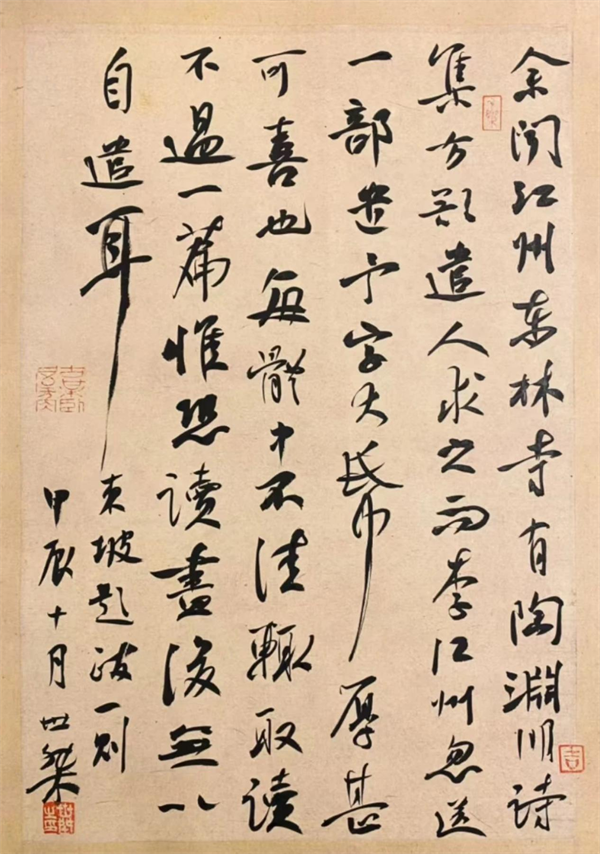 余聞江州東林寺有陶淵明詩
集方欲遣人求之而李江州忽送
一部遺予字大帋厚甚
可喜也每體中不佳輒取讀
不過一篇惟恐讀盡後無以
自遣耳
東坡題跋一則
甲辰十月世桀
吉